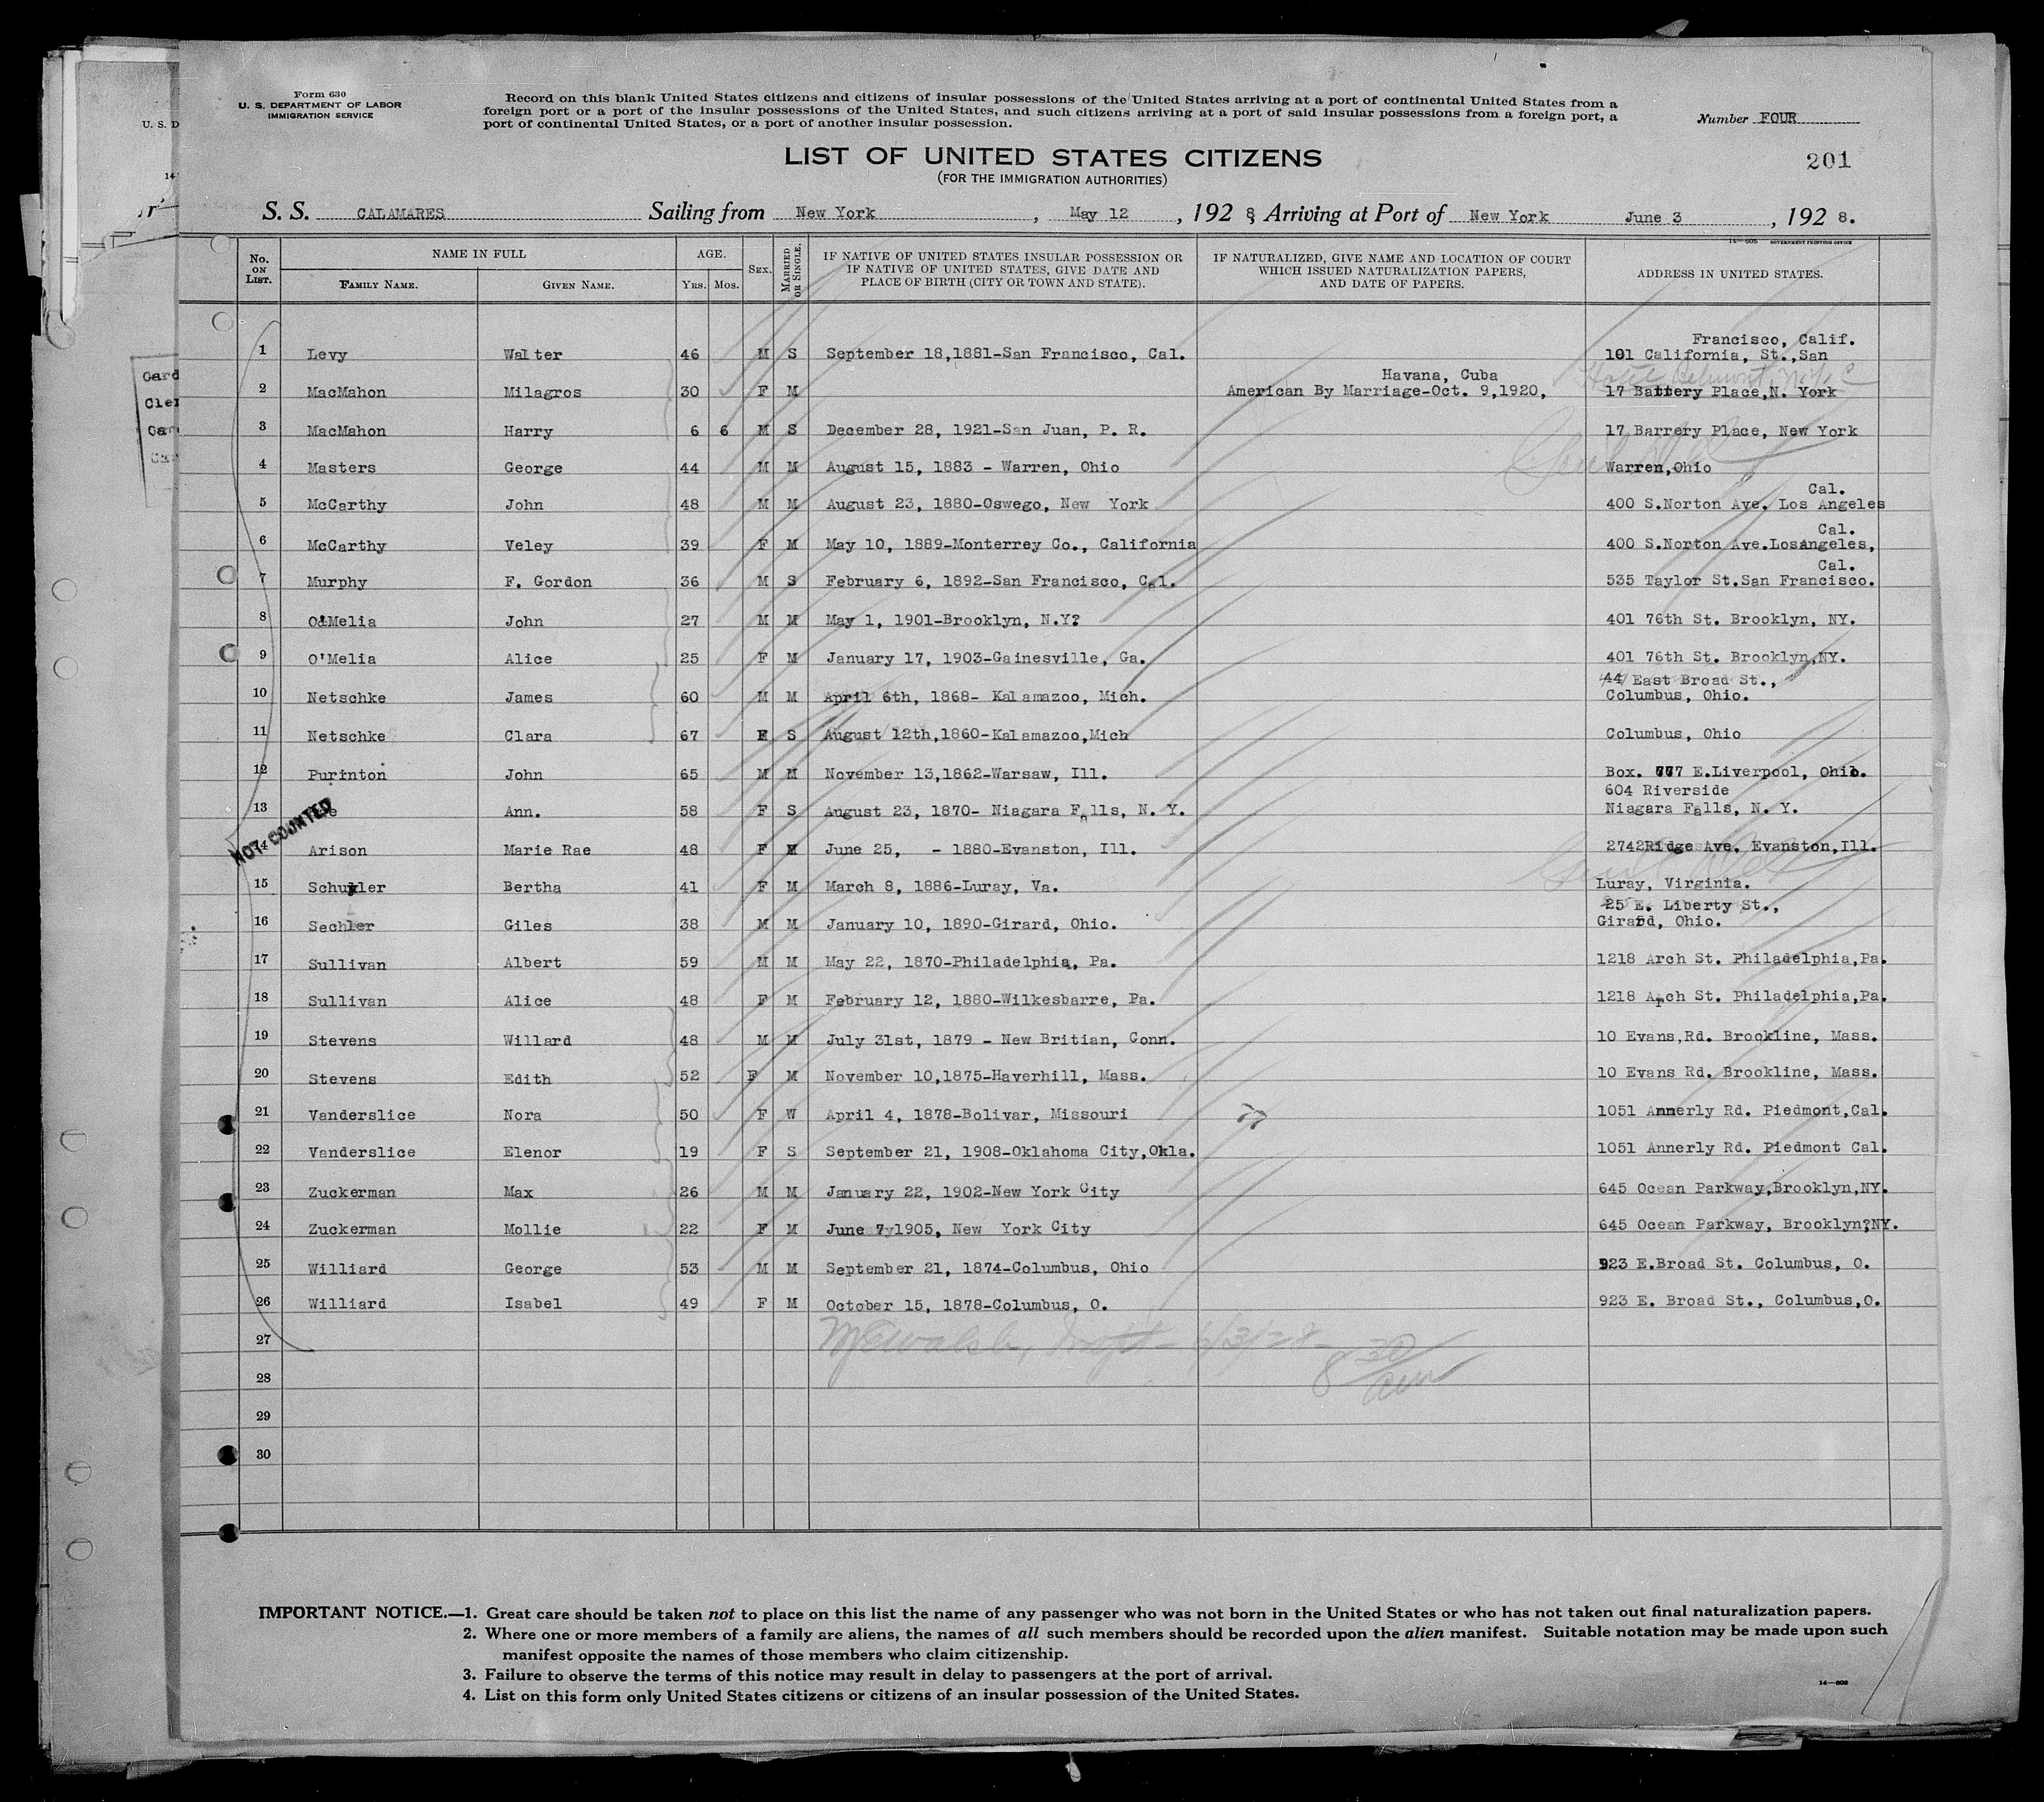 Form 630
U. S. DEPARTMENT OF LABOR
IMMIGRATION SERVICE
Record on this blank United States citizens and citizens of insular possessions of the United States arriving at a port of continental United States from a
foreign port or a port of the insular possessions of the United States, and such citizens arriving at a port of said insular possessions from a foreign port, a
port of continental United States, or a port of another insular possession.
Number FOUR
LIST OF UNITED STATES CITIZENS
(FOR THE IMMIGRATION AUTHORITIES)
201
S. S. CALAMARES Sailing from New York, May 12, 1928 Arriving at Port of New York June 3, 1928.
14—608 GOVERNMENT PRINTING OFFICE
No. ON LIST. NAME IN FULL AGE. SEX. MARRIED OR SINGLE. IF NATIVE OF UNITED STATES INSULAR POSSESSION OR IF NATIVE OF UNITED STATES, GIVE DATE AND PLACE OF BIRTH (CITY OR TOWN AND STATE). IF NATURALIZED, GIVE NAME AND LOCATION OF COURT WHICH ISSUED NATURALIZATION PAPERS, AND DATE OF PAPERS. ADDRESS IN UNITED STATES.
FAMILY NAME. GIVEN NAME. YRS. MOS.
Francisco, Calif.
1 Levy Walter 46 M S September 18,1881-San Francisco, Cal. 101 California, St.,San
Havana, Cuba
2 MacMahon Milagros 30 F M American By Marriage-Oct. 9,1920, 17 Battery Place,N. York
3 MacMahon Harry 6 6 M S December 28, 1921-San Juan, P. R. 17 Barrery Place, New York
4 Masters George 44 M M August 15, 1883 - Warren, Ohio Warren,Ohio
Cal.
5 McCarthy John 48 M M August 23, 1880-Oswego, New York 400 S.Norton Ave. Los Angeles
Cal.
6 McCarthy Veley 39 F M May 10, 1889-Monterrey Co., California 400 S.Norton Ave.LosAngeles,
Cal.
7 Murphy F. Gordon 36 M S February 6, 1892-San Francisco, Cal. 535 Taylor St.San Francisco.
8 O'Melia John 27 M M May 1, 1901-Brooklyn, N.Y? 401 76th St. Brooklyn, NY.
9 O'Melia Alice 25 F M January 17, 1903-Gainesville, Ga. 401 76th St. Brooklyn,NY.
44 East Broad St.,
10 Netschke James 60 M M April 6th, 1868- Kalamazoo, Mich. Columbus, Ohio.
11 Netschke Clara 67 F S August 12th,1860-Kalamazoo,Mich Columbus, Ohio
12 Purinton John 65 M M November 13,1862-Warsaw, Ill. Box. 777 E.Liverpool, Ohio.
604 Riverside
13 Ann. 58 F S August 23, 1870- Niagara Falls, N. Y. Niagara Falls, N. Y.
NOT COUNTED
14 Arison Marie Rae 48 F M June 25, - 1880-Evanston, Ill. 2742Ridge Ave. Evanston,Ill.
15 Schuxler Bertha 41 F M March 8, 1886-Luray, Va. Luray, Virginia.
25 E. Liberty St.,
16 Sechler Giles 38 M M January 10, 1890-Girard, Ohio. Girard, Ohio.
17 Sullivan Albert 59 M M May 22, 1870-Philadelphia, Pa. 1218 Arch St. Philadelphia,Pa.
18 Sullivan Alice 48 F M February 12, 1880-Wilkesbarre, Pa. 1218 Arch St. Philadelphia,Pa.
19 Stevens Willard 48 M M July 31st, 1879 - New Britian, Conn. 10 Evans,Rd. Brookline, Mass.
20 Stevens Edith 52 F M November 10,1875-Haverhill, Mass. 10 Evans Rd. Brookline, Mass.
21 Vanderslice Nora 50 F W April 4, 1878-Bolivar, Missouri 1051 Annerly Rd. Piedmont,Cal.
22 Vanderslice Elenor 19 F S September 21, 1908-Oklahoma City,Okla. 1051 Annerly Rd. Piedmont Cal.
23 Zuckerman Max 26 M M January 22, 1902-New York City 645 Ocean Parkway,Brooklyn,NY.
24 Zuckerman Mollie 22 F M June 7,1905, New York City 645 Ocean Parkway, Brooklyn?NY.
25 Williard George 53 M M September 21, 1874-Columbus, Ohio 923 E.Broad St. Columbus, O.
26 Williard Isabel 49 F M October 15, 1878-Columbus, O. 923 E. Broad St., Columbus,O.
27 6/3/28
28 8 30 am
29
30
IMPORTANT NOTICE.—1. Great care should be taken not to place on this list the name of any passenger who was not born in the United States or who has not taken out final naturalization papers.
2. Where one or more members of a family are aliens, the names of all such members should be recorded upon the alien manifest. Suitable notation may be made upon such
manifest opposite the names of those members who claim citizenship.
3. Failure to observe the terms of this notice may result in delay to passengers at the port of arrival.
4. List on this form only United States citizens or citizens of an insular possession of the United States.
14—608